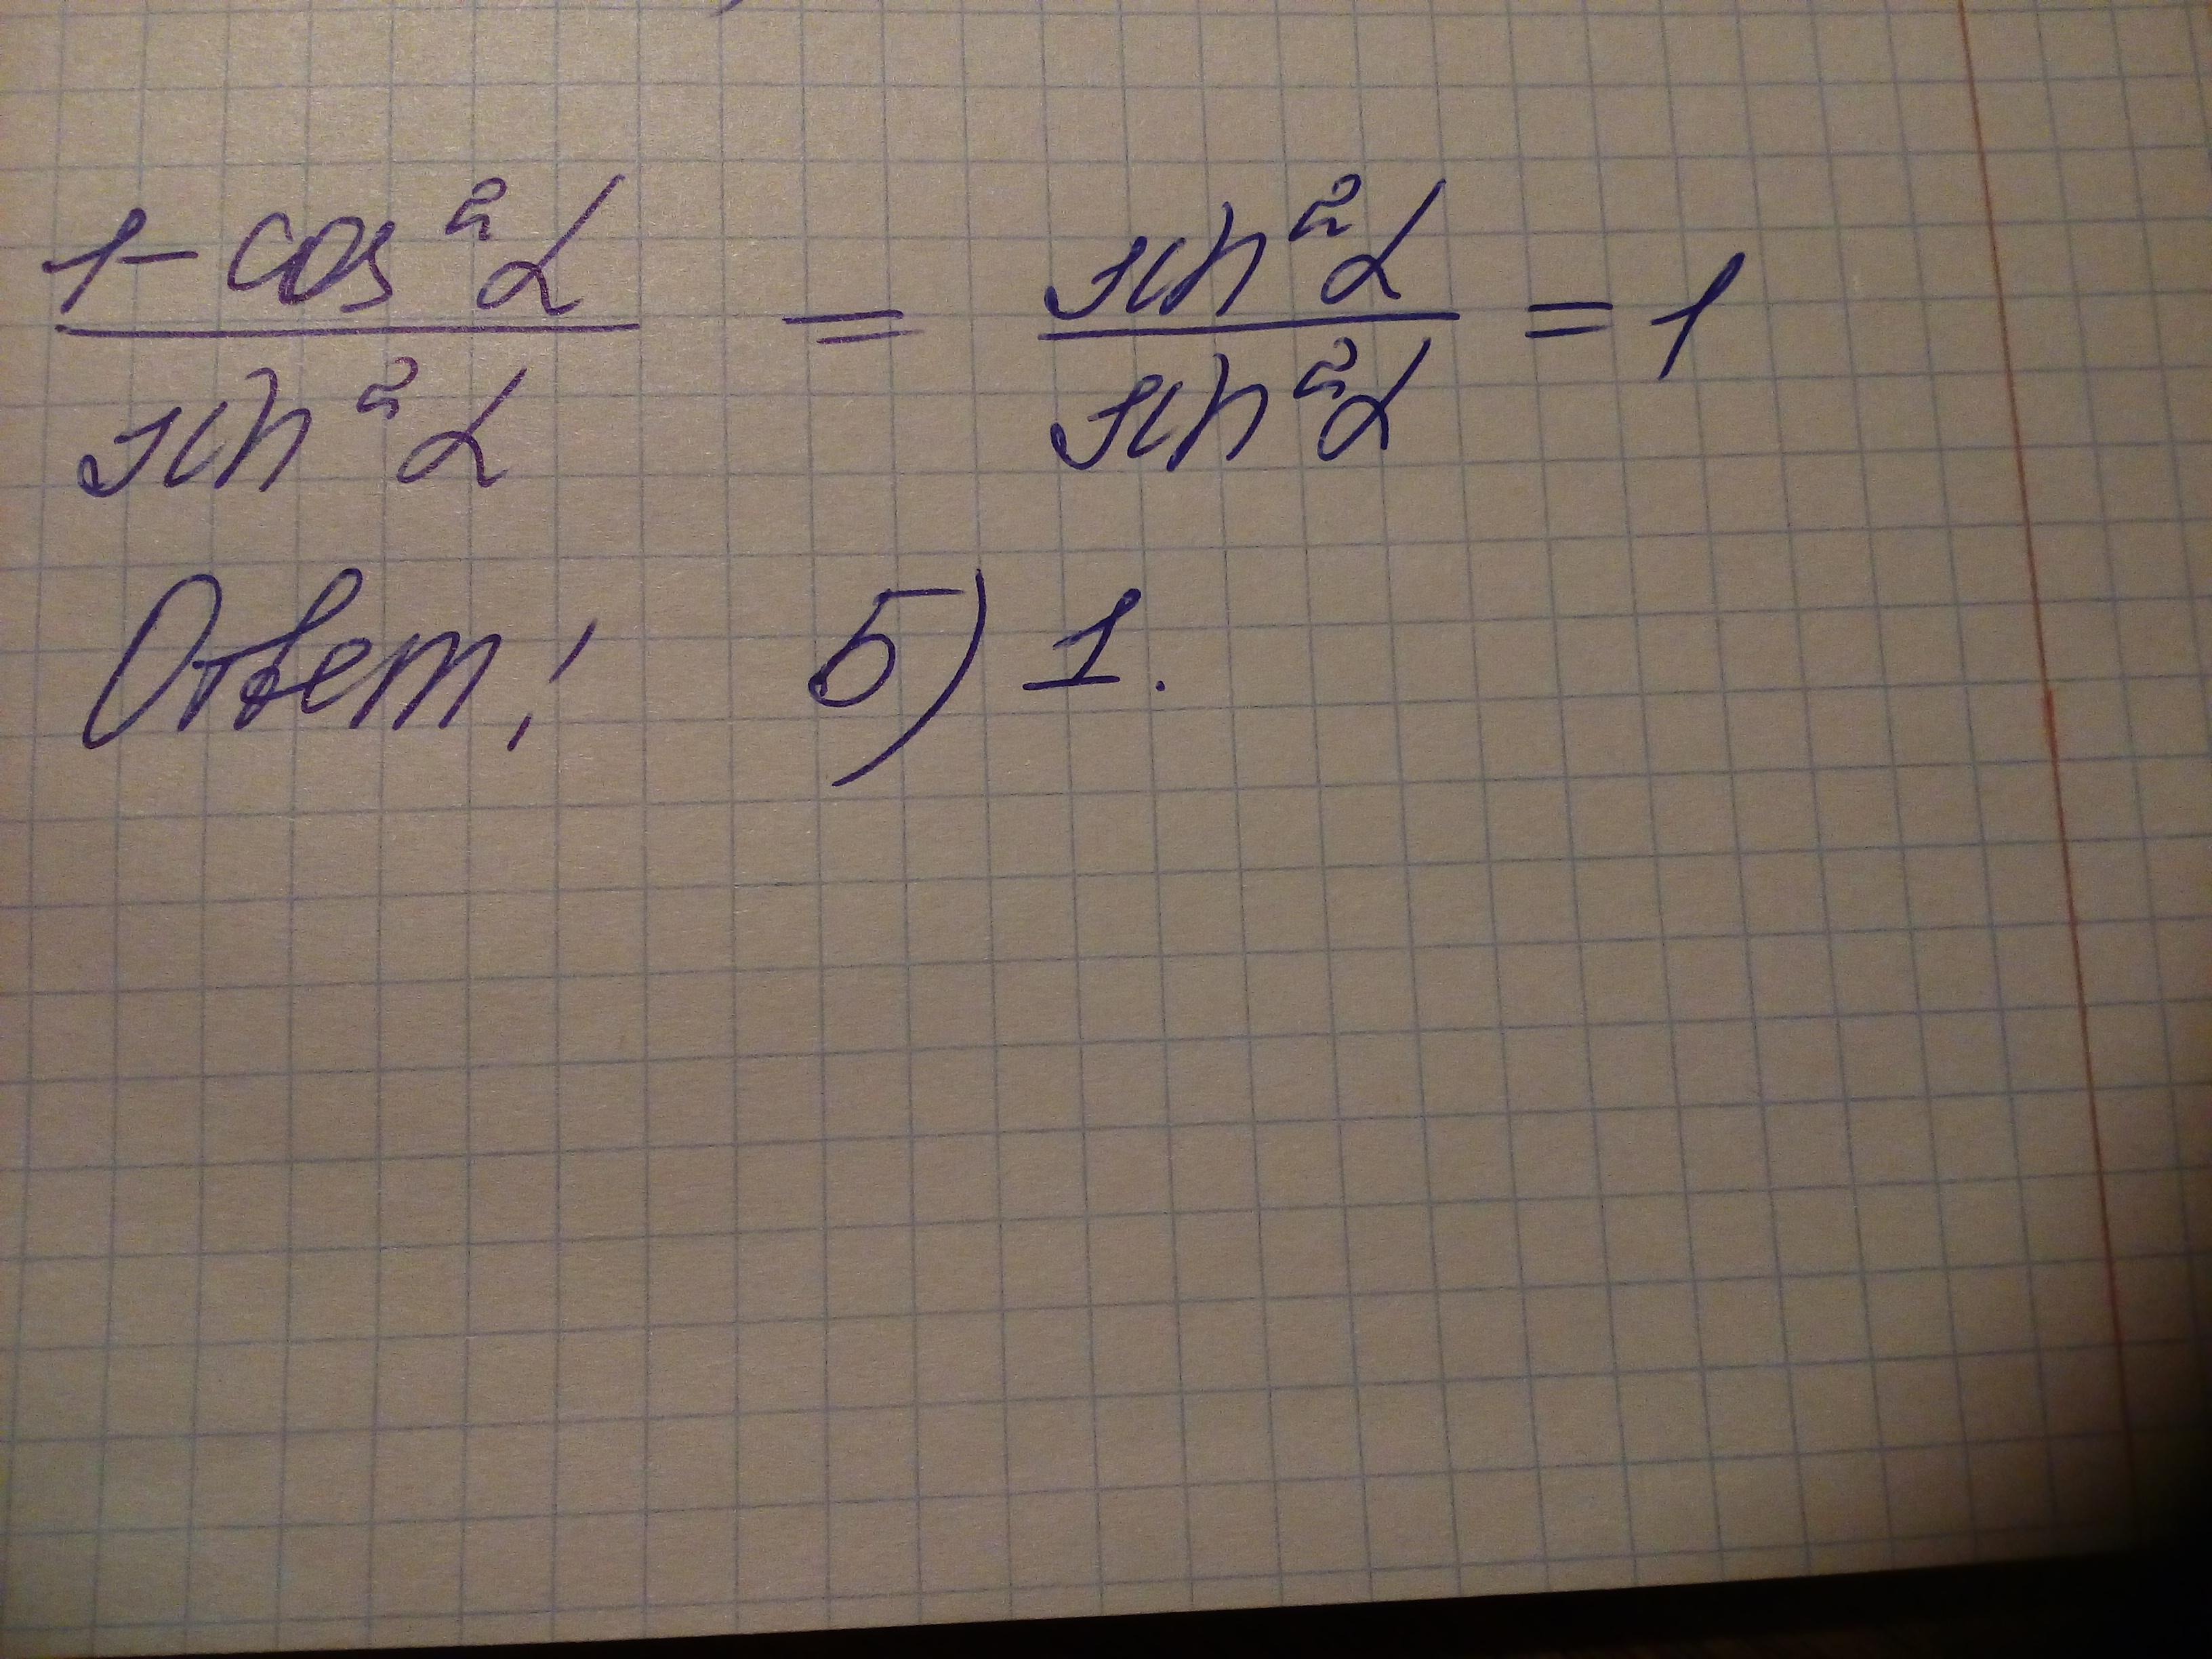 (1-cos²α)/(sin²α) = (sin²α)/(sin²α) = 1
Ответ: Б) 1.